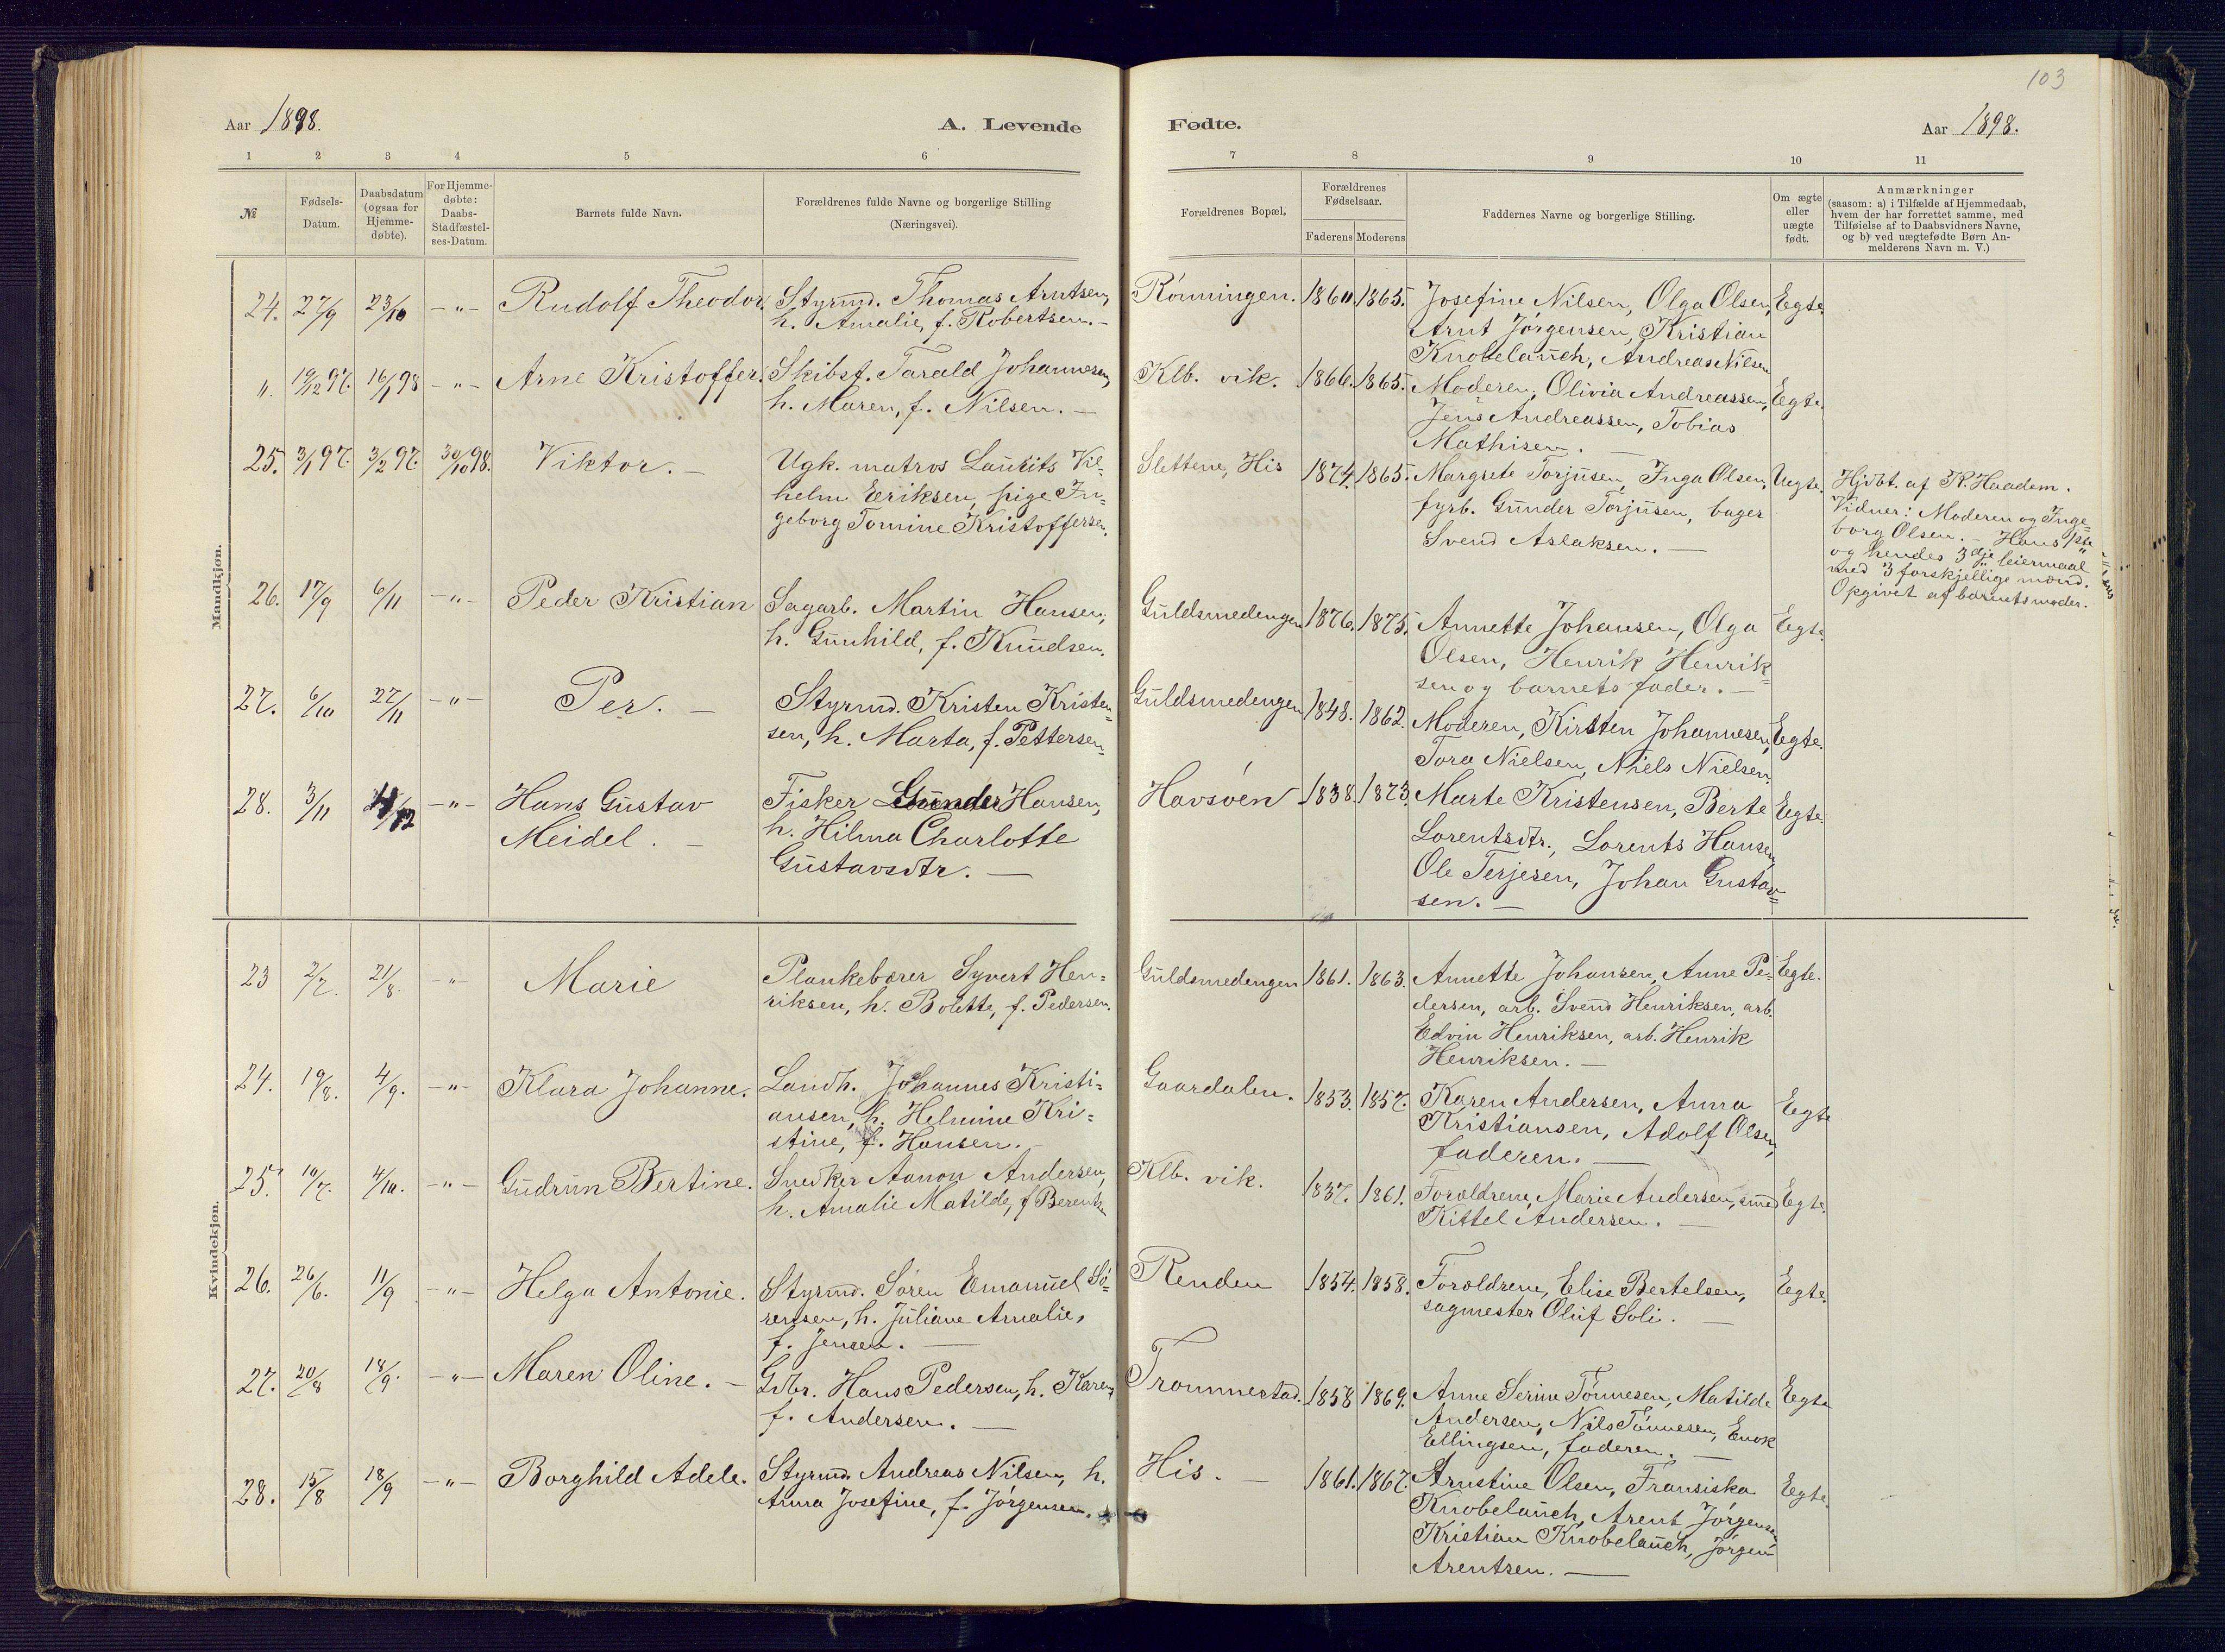 103
Aar 1898.
A. Levende
Fødte.
Aar 1898.
1 2 3 4 5 6
7 8 9 10 11
№
Fødsels-
Datum.
Daabsdatum
(ogsaa for
Hjemme-
døbte).
For Hjemme-
døbte:
Daabs-
Stadfæstel-
ses-Datum.
Barnets fulde Navn.
Forældrenes fulde Navne og borgerlige Stilling
(Næringsvei).
Forældrenes Bopæl.
Forældrenes
Fødselsaar.
Faderens Moderens
Faddernes Navne og borgerlige Stilling.
Om ægte
eller
uægte
født.
Anmærkninger
(saasom: a) i Tilfælde af Hjemmedaab,
hvem der har forrettet samme, med
Tilføielse af to Daabsvidners Navne,
og b) ved uægtefødte Børn An-
melderens Navn m. V.)
Mandkjøn.
24. 27/9 23/10 -"- Rudolf Theodor. Styrmd. Thomas Arntsen,
h. Amalie, f. Robertsen. -
Rönningen. 1860. 1865. Josefine Nilsen, Olga Olsen, Egte.
Arnt Jörgensen, Kristian
Knobelauch, Andreas Nilsen
". 19/12 97. 16/1 98 -"- Arne Kristoffer. Skibsf. Tarald Johannesen,
h. Maren, f. Nilsen. -
Klb. vik. 1866. 1865. Moderen, Olivia Andreassen, Egte.
Jens Andreassen, Tobias
Mathisen. -
25. 3/1 97. 3/2 97. 30/10 98. Viktor. - Ugk. matros Laurits Vil-
helm Eriksen, pige In-
geborg Tomine Kristoffersen.
Slettene, His 1874. 1865. Margrete Torjusen, Inga Olsen, Uegte.
fyrb. Gunder Torjusen, bager
Svend Aslaksen. -
Hjdbt. af K. Haadem.
Vidner: Moderen og Inge-
borg Olsen. - Hans 1ste
og hendes 3dje leiermaal
med 3 forskjellige mænd.
Opgivet af barnets moder.
26. 17/9 6/11 -"- Peder Kristian Sagarb. Martin Hansen,
h. Gunhild, f. Knudsen.
Guldsmedengen 1876. 1875. Annette Johansen, Olga Egte.
Olsen, Henrik Henrik-
sen og barnets fader. -
27. 6/10 27/11 -"- Per. - Styrmd. Kristen Kristen-
sen, h. Marta, f. Pettersen.
Guldsmedengen 1848. 1862. Moderen, Kirsten Johannesen, Egte.
Tora Nielsen, Niels Nielsen.
28. 3/11 /12 -"- Hans Gustav
Meidel. -
Fisker Gunder Hansen,
h. Hilma Charlotte
Gustavsdtr. -
Havsöen 1838. 1873. Marte Kristensen, Berte Egte.
Lorentsdtr., Lorents Hansen,
Ole Terjesen, Johan Gustav-
sen. -
Kvindekjøn.
23 2/7. 21/8. -"- Marie Plankebærer Syvert Hen-
riksen, h. Bolette, f. Pedersen.
Guldsmedengen 1861. 1863. Annette Johansen, Anne Pe- Egte.
dersen, arb. Svend Henriksen, arb.
Edvin Henriksen, arb. Henrik
Henriksen. -
24. 19/8. 4/9. -"- Klara Johanne. Landh. Johannes Kristi-
ansen, h. Helmine Kri-
stine, f. Hansen. -
Gaardalen. 1853. 1857. Karen Andersen, Anna Egte
Kristiansen, Adolf Olsen,
faderen. -
25. 19/7. 4/10. -"- Gudrun Bertine. Snedker Aanon Andersen,
h. Amalie Matilde, f Berents.
Klb. vik. 1837. 1861. Forældrene, Marie Andersen, smed Egte.
Kittel Andersen. -
26. 26/6. 11/9 -"- Helga Antonie. Styrmd. Sören Emanuel Sö-
rensen, h. Juliane Amalie,
f. Jensen. -
Renden 1854. 1858. Forældrene, Elise Bertelsen, Egte.
sagmester Oluf Soli. -
27. 20/8 18/9. -"- Maren Oline. - Gdbr. Hans Pedersen, h. Karen,
f. Andersen. -
Trommestad. 1858 1869. Anne Serine Tönnesen, Matilde Egte
Andersen, Nils Tönnesen, Enok
Ellingsen, faderen. -
28. 15/8 18/9 -"- Borghild Adele. Styrmd. Andreas Nilsen, h.
Anna Josefine, f. Jörgensen.
His. - 1861. 1867. Arnstine Olsen, Fransiska Egte.
Knobelauch, Arent Jörgensen
Kristian Knobelauch, Jörgen
Arentsen. -